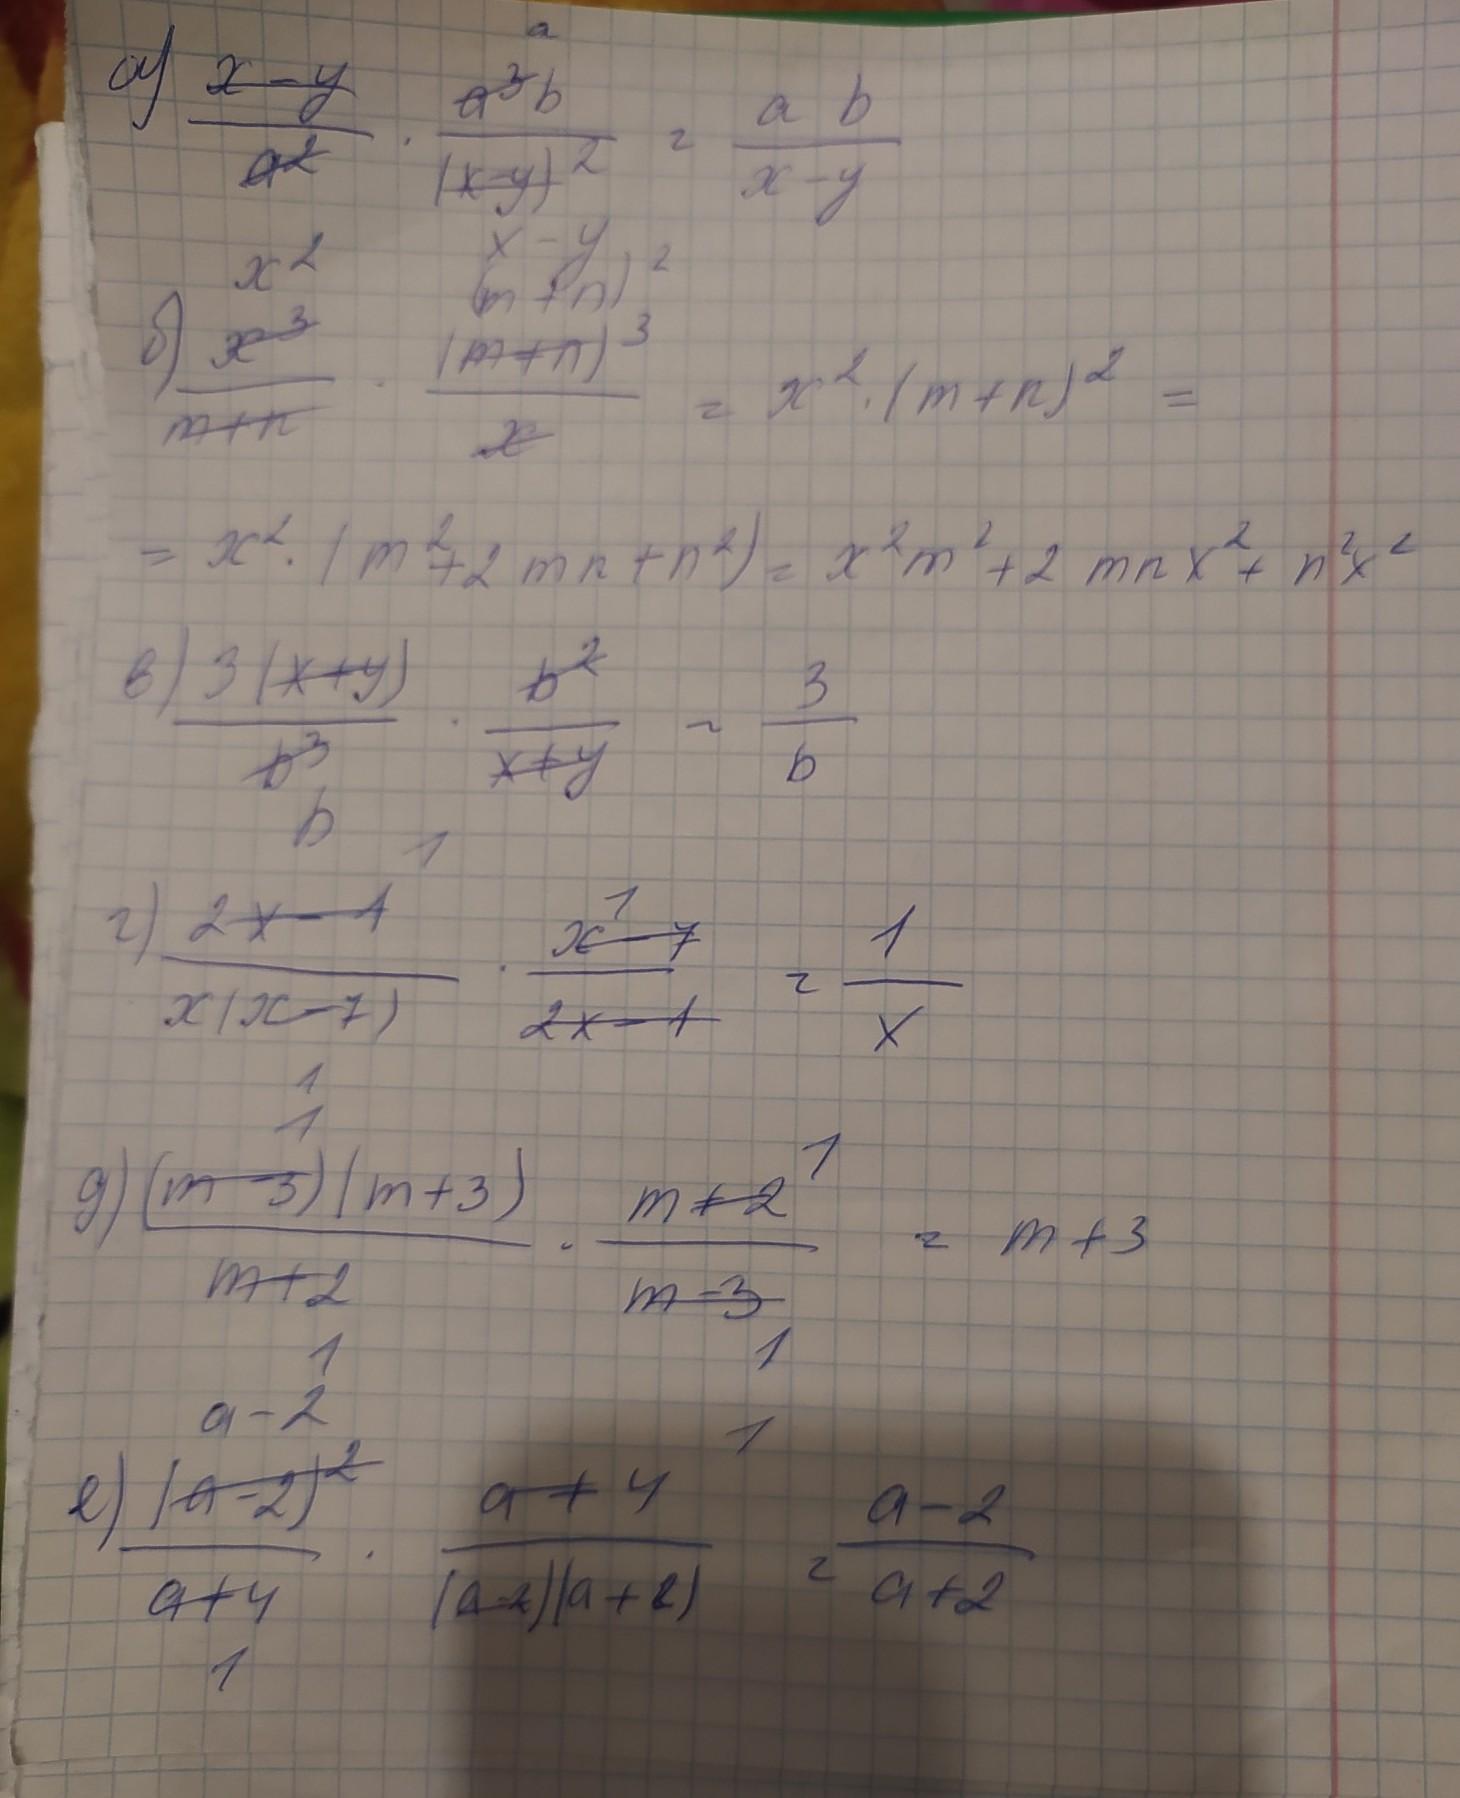 a
а) x-y/a² · a³b/(x-y)² = a b/x-y
x-y
x² (m+n)²
б) x³/m+n · (m+n)³/x = x² · (m+n)² =
= x² · (m²+2mn+n²) = x²m²+2mnx²+n²x²
в) 3(x+y)/b³ · b²/x+y = 3/b
b
1 1
г) 2x-1/x(x-7) · x-7/2x-1 = 1/x
1
1 1
д) (m-3)(m+3)/m+2 · m+2/m-3 = m+3
1 1
a-2 1
е) (a-2)²/a+4 · a+4/(a-2)(a+2) = a-2/a+2
1